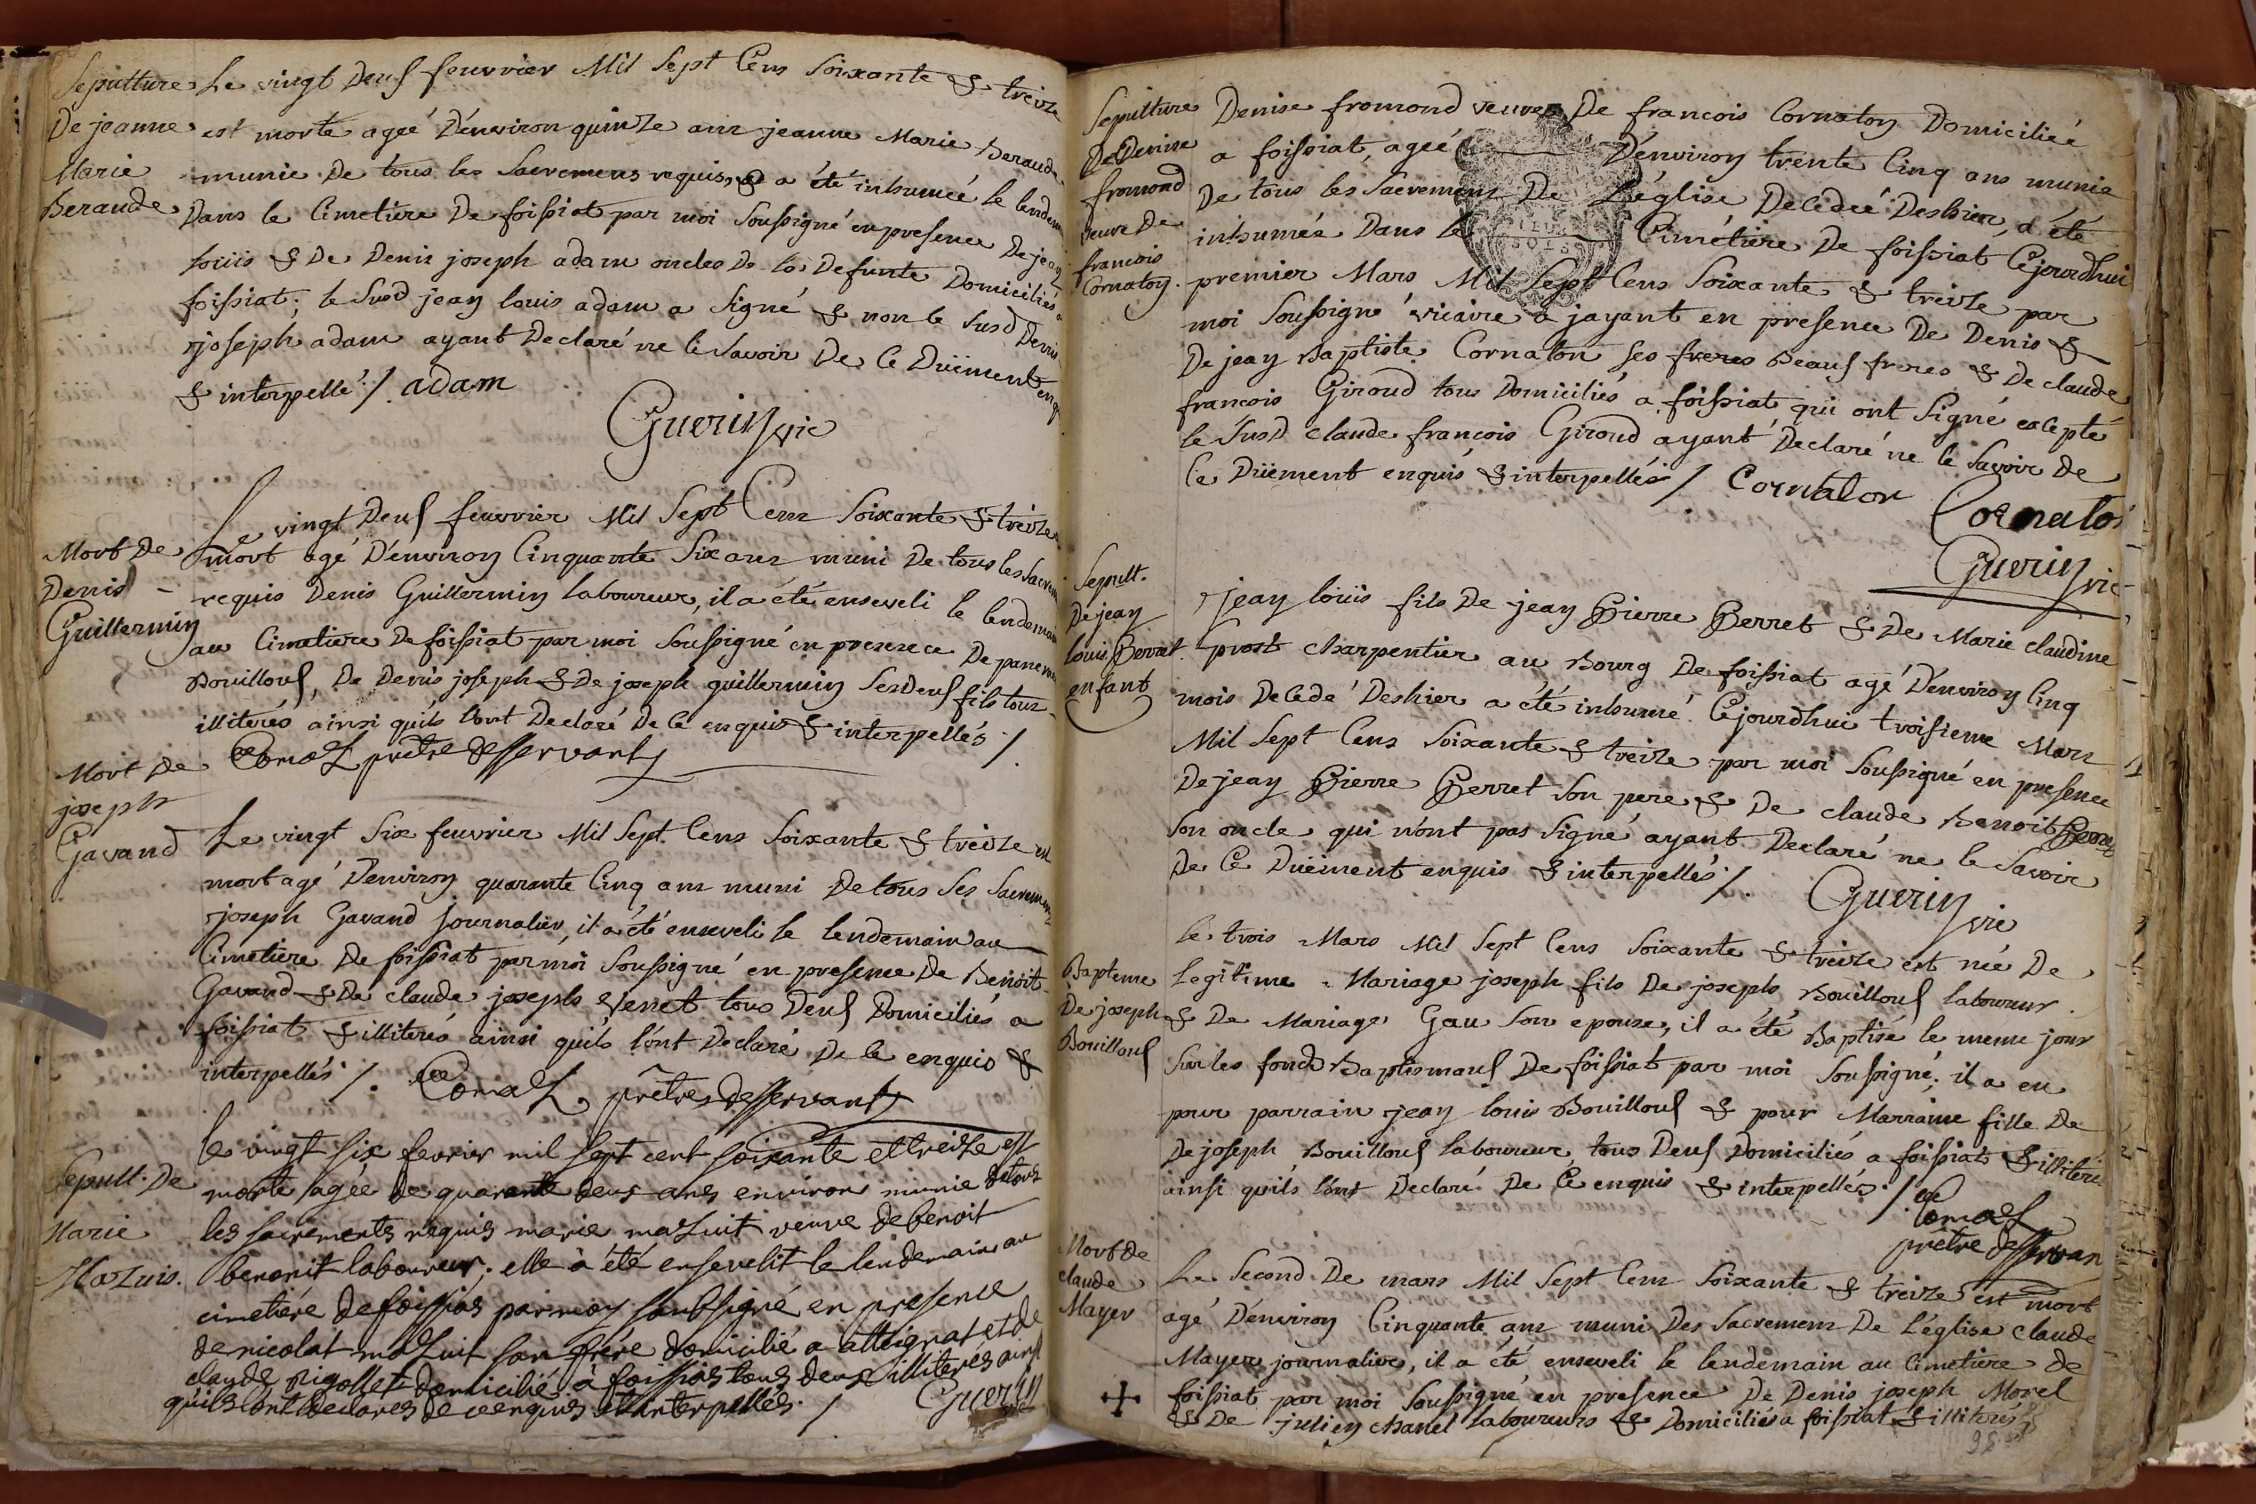 Sepulture
De jeanne
Marie
Beraude
Le vingt Deux feuvrier Mil Sept Cens Soixante & treize
est morte ageé D'environ quinze ans jeanne Marie Beraude
munie De tous les Sacremens requis, & a été inhumeé le lendem
Dans le Cimetiere De foissiat par moi Soussigné en presence De jean
loüis & De Denis joseph adam oncles De la Defunte Domiciliés a
foissiat; le Susd jean louis adam a Signé & non le Susd Denis
joseph adam ayant Declaré ne le Savoir De Ce Düement enq
& interpellé /. adam
Guerin vic
Mort De
Denis
Guillermin
Le vingt Deux feuvrier Mil Sept Cens Soixante & treize
mort agé D'environ Cinquante Six ans muni De tous les Sacrem
requis Denis Guillermin laboureur, il a été enseveli le lendemain
au Cimetiere De foissiat par moi Soussigné en presence De
Bouilloux, De Denis joseph & De joseph guillermin Ses Deux fils tous
illiterés ainsi qu'ils l'ont Declaré De Ce enquis & interpellés /.
prêtre desservant
Mort De
joseph
Gavand
Le vingt Six feuvrier Mil Sept Cens Soixante & treize est
mort agé D'environ quarante Cinq ans muni De tous Ses Sacremens
joseph Gavand journalier, il a été enseveli le lendemain au
Cimetiere De foissiat par moi Soussigné en presence De Benoit
Gavand & De claude joseph tous Deux Domiciliés a
foissiat & illiterés ainsi qu'ils l'ont Declaré De Ce enquis &
interpellés /. prêtre desservant
Sepult. De
Marie
Mazuis.
le vingt six fevrier mil sept cent soixante et treize est
morte agée de quarante deux ans environ munie de tous
les sacrements requis marie mazuit veuve de benoit
benonit laboureur; elle à été ensevelit le lendemain au
cimetiére de foissias par moy soubsigné en presence
de nicolat mazuit son frére domicilié a attignat et de
claude rigollet domicilié à foissias tous deux illiterés ainsi
qu'ils l'ont declarés de ce enquis et interpellés. / Guerin
Sepulture
De Denise
fromond
veuve De
francois
Cornaton.
Denise fromond veuve De francois Cornaton Domiciliée
a foissiat, ageé D'environ trente Cinq ans munie
De tous les Sacremens De L'église Decedeé Deshier, a été
inhumée Dans le Cimétiere De foissiat Cejourdhui
premier Mars Mil Sept Cens Soixante & treize par
moi Soussigné vicaire a jayant en presence De Denis &
De jean Baptiste Cornaton Ses freres Beaux freres & De claude
francois Giroud tous Domiciliés a foissiat qui ont Signé excepté
le Susd claude francois Giroud ayant Declaré ne le Savoir De
Ce Düement enquis & interpellés / Cornaton
Cornaton
Guerin vic
Sepult.
De jean
louis Perret
enfant
jean loüis fils De jean Pierre Perret & De Marie claudine
prost charpentier au Bourg De foissiat agé D'environ Cinq
mois Decedé Deshier a été inhumé Cejourdhui troisieme Mars
Mil Sept Cens Soixante & treize par moi Soussigné en presence
De jean Pierre Perret Son pere & De claude Benoit Perret
Son oncle qui n'ont pas Signé ayant Declaré ne le Savoir
De Ce Düement enquis & interpellés /.
Guerin vic
Bapteme
De joseph
Bouilloux
le trois Mars Mil Sept Cens Soixante & treize est né De
Legitime Mariage joseph fils De joseph Bouilloux laboureur
& De Mariage Gau Son epouse, il a été Baptisé le meme jour
Sur les fonds Baptismaux De foissiat par moi Soussigné; il a eu
pour parrain jean louis Bouilloux & pour Marraine fille De
De joseph Bouilloux laboureur tous Deux Domiciliés a foissiat & illiterés
ainsi qu'ils l'ont Declaré De Ce enquis & interpellés. /.
prêtre desservan
Mort de
claude
Mayer
Le Second De mars Mil Sept Cens Soixante & treize est mort
agé D'environ Cinquante ans muni Des Sacremens De L'église claude
Mayer journalier, il a été enseveli le lendemain au Cimetiere de
foissiat par moi Soussigné en presence De Denis joseph Morel
& De julien chanel laboureurs & Domiciliés a foissiat & illiterés